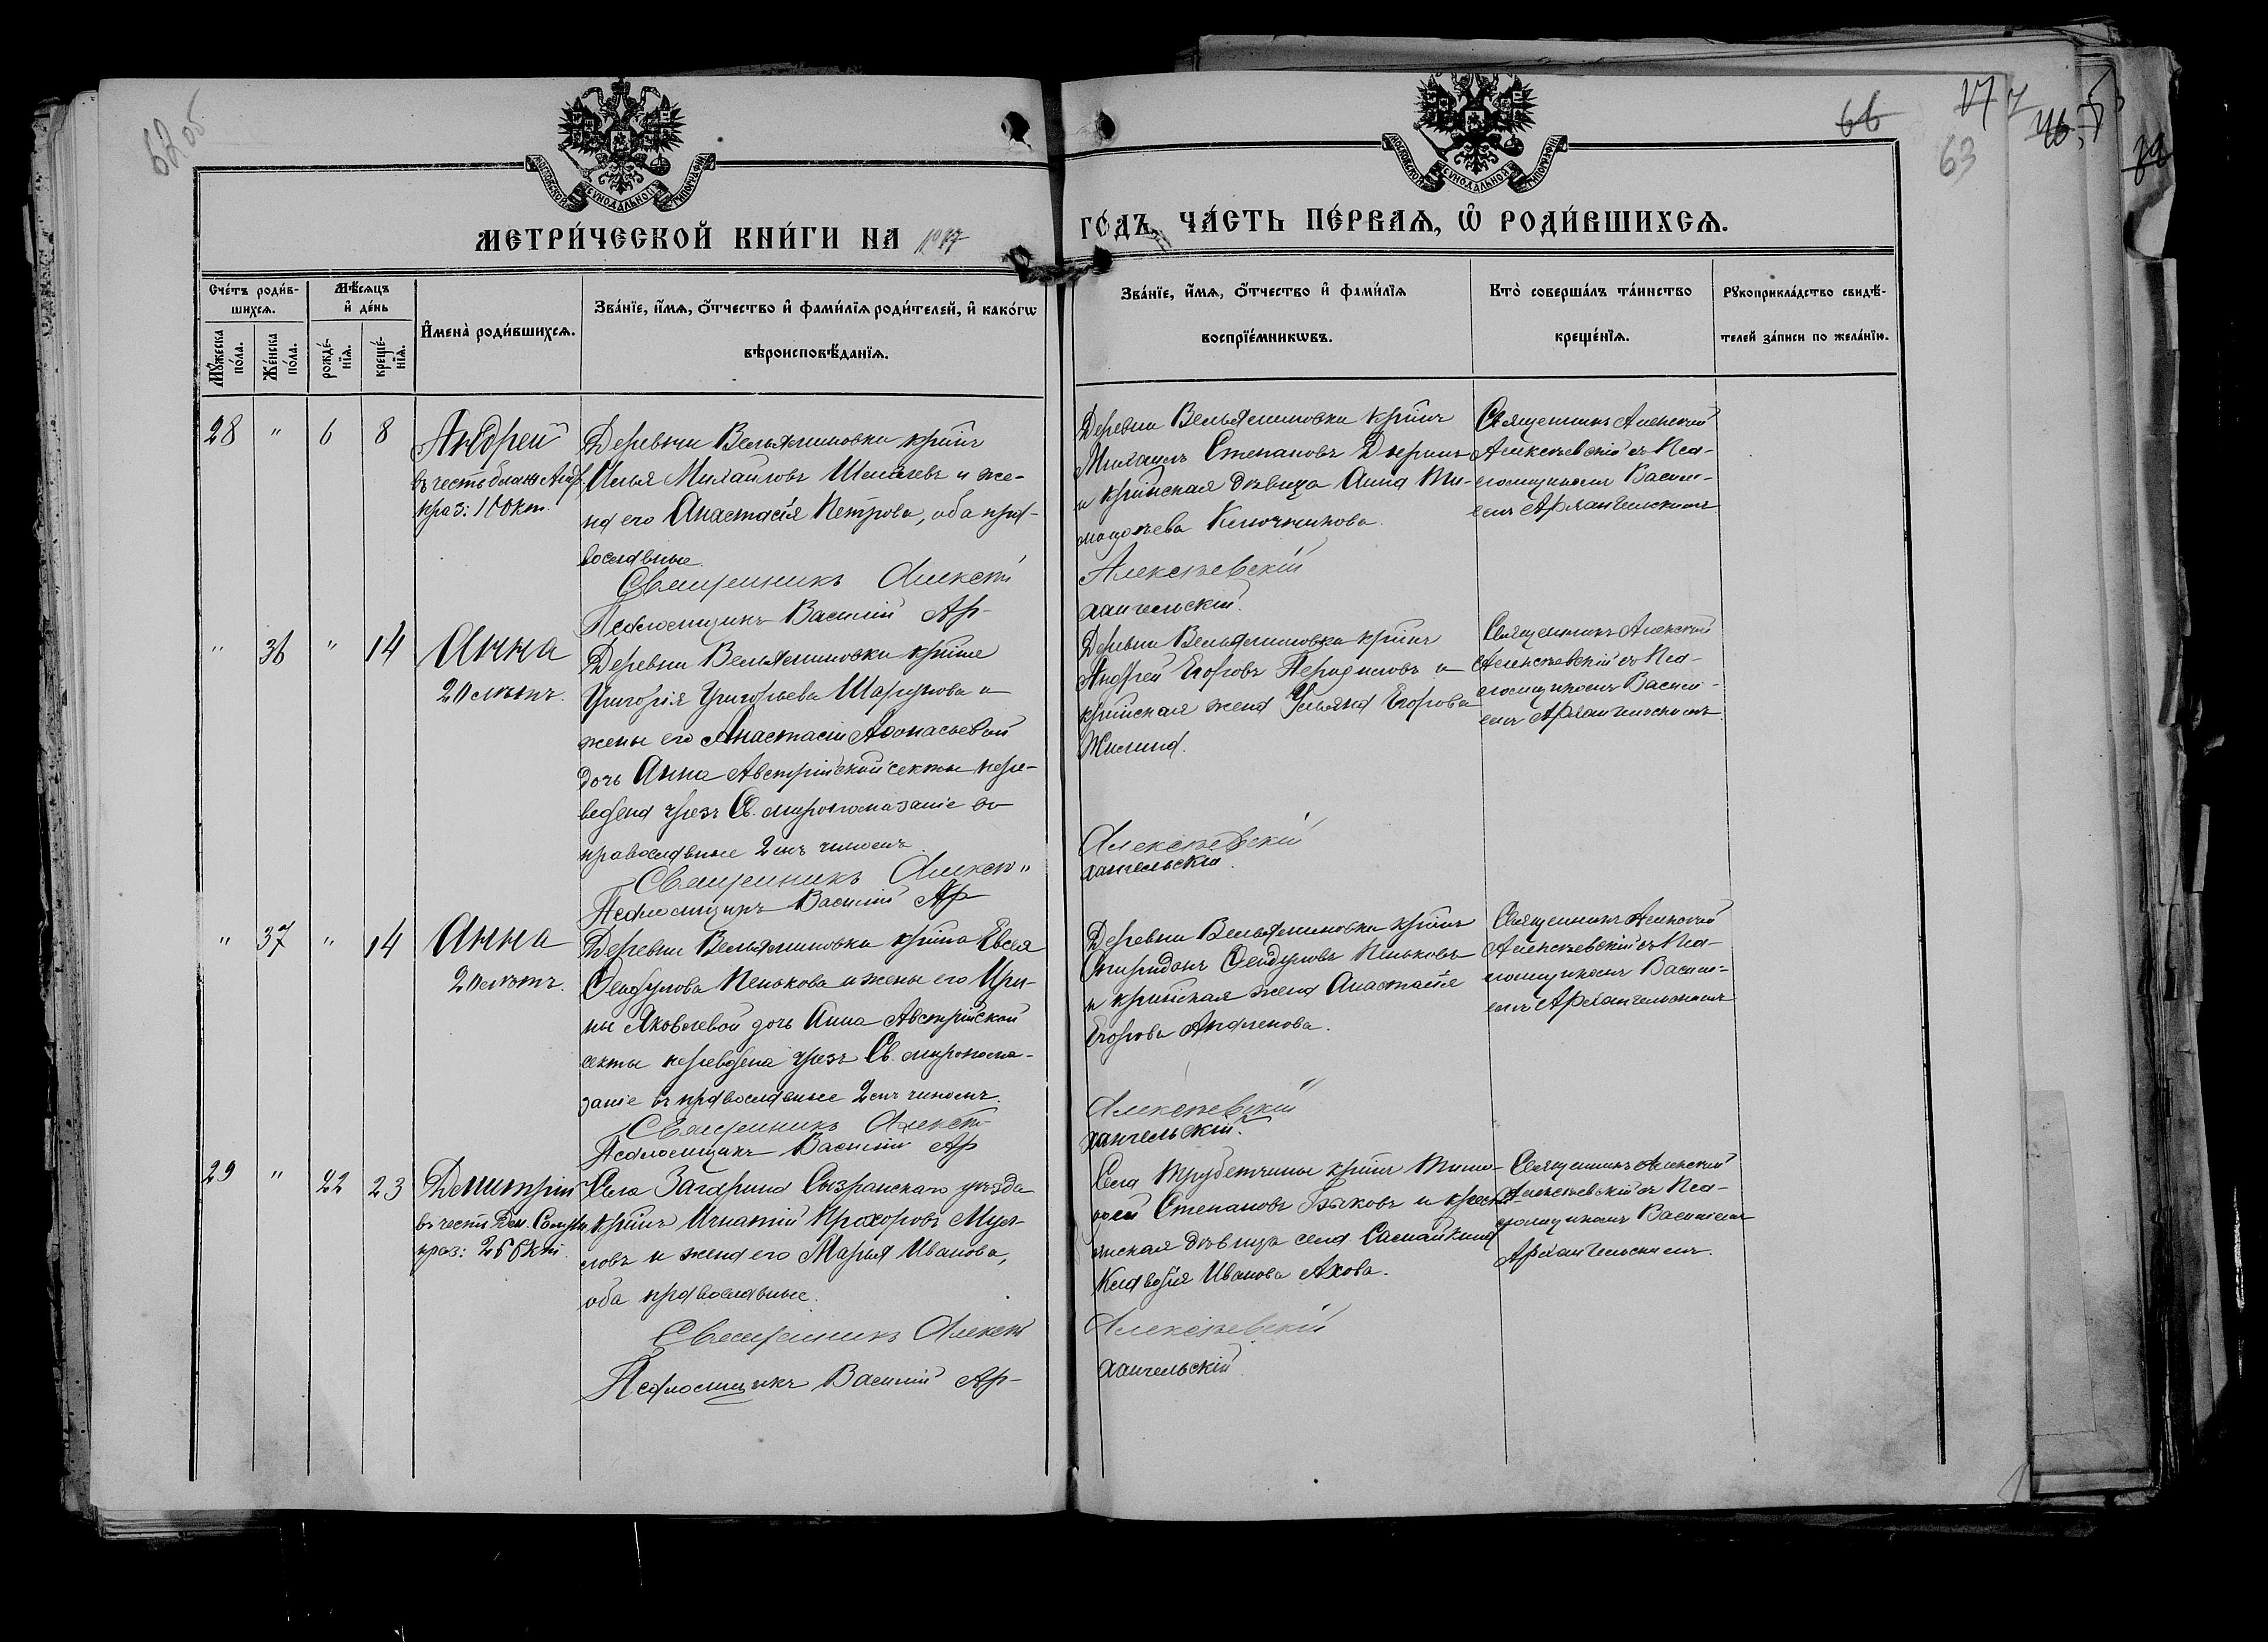 62 об
66
63
МОСКОВСКОЙ СѴНОДАЛЬНОЙ ТИПОГРАФІИ
МОСКОВСКОЙ СѴНОДАЛЬНОЙ ТИПОГРАФІИ
МЕТРИ́ЧЕСКОЙ КНИ́ГИ НА
ГО́ДЪ, ЧА́СТЬ ПЕ́РВАѦ, Ѡ РОДИ́ВШИХСѦ.
Сче́тъ роди́в-
шихсѧ.
Мꙋ́жеска по́ла.
Же́нска по́ла.
Мѣ́сѧцъ
и де́нь
рожде́-
нїѧ.
креще́-
нїѧ.
Имена̀ роди́вшихсѧ.
Зва́нїе, и́мѧ, о́тчество и фами́лїѧ роди́телей, и како́гѡ
вѣроисповѣ́данїѧ.
Зва́нїе, и́мѧ, о́тчество и фами́лїѧ
воспрїе́мникѡвъ.
Кто̀ соверша́лъ та́инство
креще́нїѧ.
Рꙋкоприкла́дство свидѣ́-
телей за́писи по жела́нїю.
28 " 6 8
Андрей
праз: 10 окт.
Деревни Вельяминовки кр҃нинъ
Илья Михайловъ и же-
на его Анастасія Петрова, оба пра-
вославные.
Священникъ Алексѣй
Псаломщикъ Василий Ар-
Деревни Вельяминовки кр҃нинъ
Михаилъ Степановъ
и кр҃нская дѣвица Анна Ти-
моѳеева Ключникова.
Алексѣевскій
хангельскій.
Священникъ Алексѣй
Алексѣевскій съ Пса-
ломщикомъ Васили-
емъ Архангельскимъ
" 36 " 14
Анна
20 лѣтъ.
Деревни Вельяминовки кр҃нина
Григорія Григорьева и
жены его Анастасіи Аѳонасьевой
дочь Анна Австрійской секты пере-
ведена чрезъ Св. миропомазаніе въ
православные 2мъ чиномъ.
Священникъ Алексѣ"
Псаломщикъ Василий Ар-
Деревни Вельяминовки кр҃нинъ
Андрей Егоровъ и
кр҃нская жена Ульяна Егорова
Жилина.
Алексѣевскій
хангельскій.
Священникъ Алексѣй
Алексѣевскій съ Пса-
ломщикомъ Васили-
емъ Архангельскимъ
" 37 " 14
Анна
20 лѣтъ.
Деревни Вельяминовки кр҃нина Евсея
Пенькова и жены его Ири-
ны Яковлевой дочь Анна Австрійской
секты переведена чрезъ Св. миропома-
заніе въ православные 2мъ чиномъ.
Священникъ Алексѣй
Псаломщикъ Василий Ар
Деревни Вельяминовки кр҃нинъ
Спиридонъ Пеньковъ
и кр҃нская жена Анастасія
Егорова
Алексѣевскій
хангельскій.
Священникъ Алексѣй
Алексѣевскій съ Пса-
ломщикомъ Васили-
емъ Архангельскимъ
29 " 22 23
Димитрій
въ честь Дим. Солун.
праз: 26 окт.
Села Загарина Сызранскаго уѣзда
кр҃нинъ Игнатій Прохоровъ
и жена его Марья Иванова,
оба православные.
Священникъ Алексѣй
Псаломщикъ Василий Ар-
Села Трубетчины кр҃нинъ Тимо-
ѳей Степановъ Быковъ и кресть-
янская дѣвица села Самайкина
Клавдія Иванова Ахова.
Алексѣевскій
хангельскій
Священникъ Алексѣй
Алексѣевскій съ Пса-
ломщикомъ Василиемъ
Архангельскимъ.